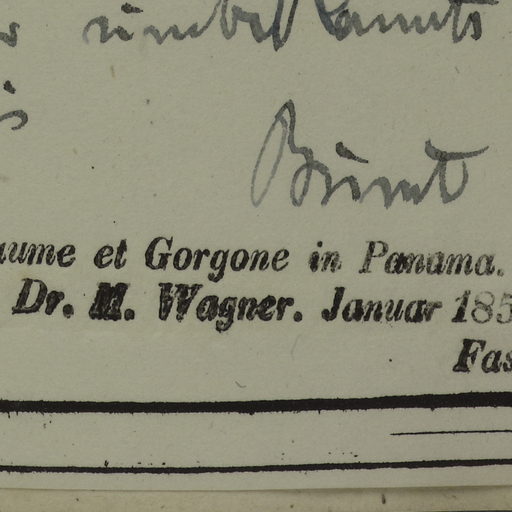 unbekannts
aume et Gorgone in Panama.
Dr. M. Wagner. Januar 185
Fas